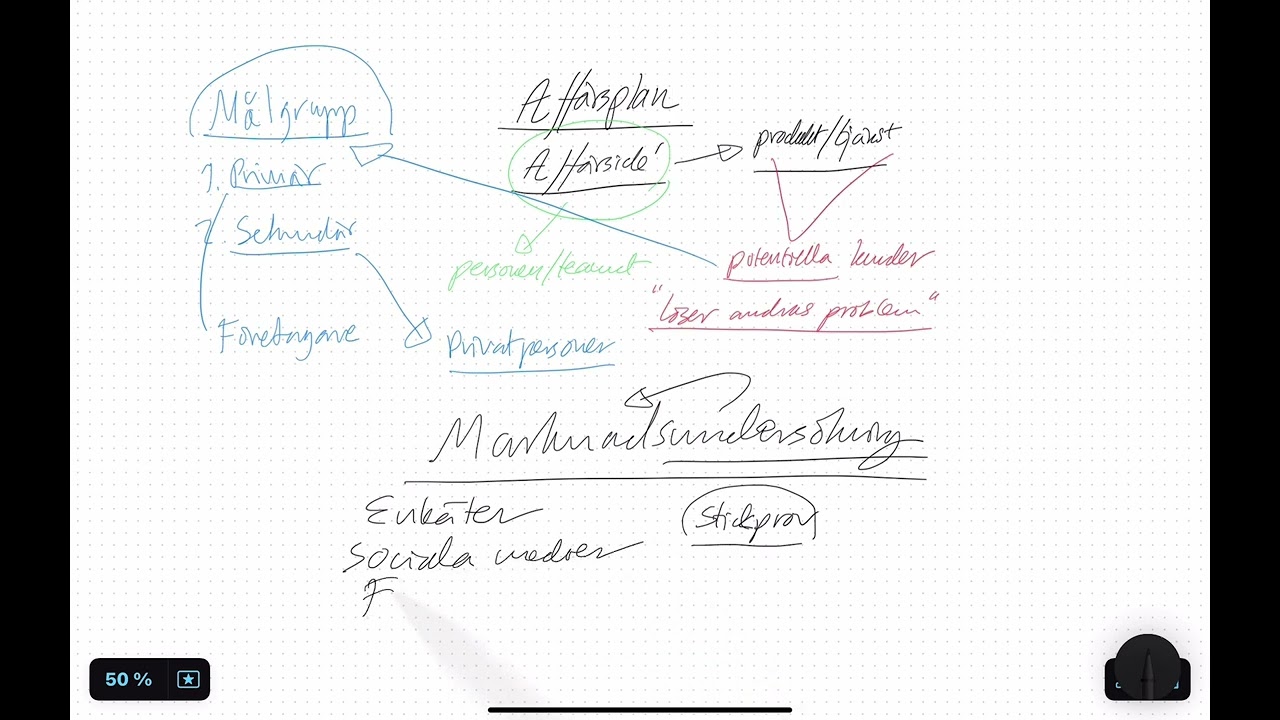 Målgrupp
1. Primär
2. Sekundär
Företagare
Privatpersoner
Affärsplan
Affärsidé
produkt/tjänst
personen/teamet
potentiella kunder
"löser andras problem"
Marknadsundersökning
Enkäter
Stickprov
Sociala medier
F
50 %